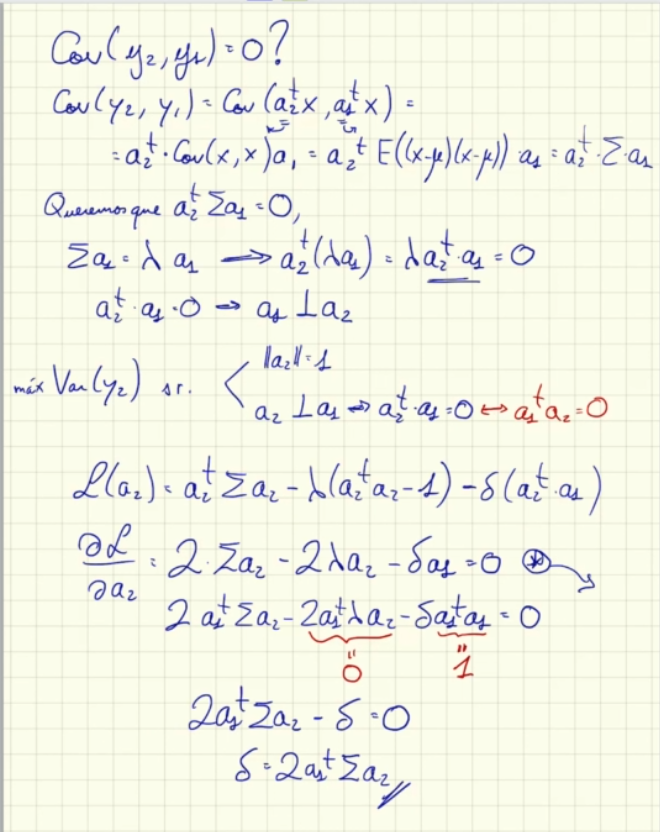 Cov(y₂, y₁) = 0?
Cov(y₂, y₁) = Cov(a₂ᵗx, a₁ᵗx) =
= a₂ᵗ · Cov(x, x)a₁ = a₂ᵗ E((x-μ)(x-μ)) · a₁ = a₂ᵗ · Σ · a₁
Queremos que a₂ᵗ Σa₁ = 0,
Σa₁ = λ a₁ → a₂ᵗ(λa₁) = λa₂ᵗ · a₁ = 0
a₂ᵗ · a₁ = 0 → a₁ ⊥ a₂
máx Var(y₂) s.r. < ||a₂|| = 1
a₂ ⊥ a₁ ⇒ a₂ᵗ · a₁ = 0 ↔ a₁ᵗa₂ = 0
ℒ(a₂) = a₂ᵗ Σa₂ - λ(a₂ᵗa₂ - 1) - δ(a₂ᵗ · a₁)
∂ℒ/∂a₂ = 2 · Σa₂ - 2λa₂ - δa₁ = 0 ⊛
2 a₁ᵗ Σa₂ - 2a₁ᵗλa₂ - δa₁ᵗa₁ = 0
= =
0 1
2a₁ᵗΣa₂ - δ = 0
δ = 2a₁ᵗ Σa₂